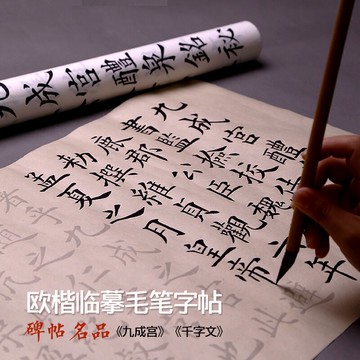 九成宮醴泉銘秘
九成宮醴
書監檢校侍
鹿郡公臣魏
勑撰
維貞觀六年
孟夏之月皇帝
欧楷临摹毛笔字帖
碑帖名品《九成宫》《千字文》